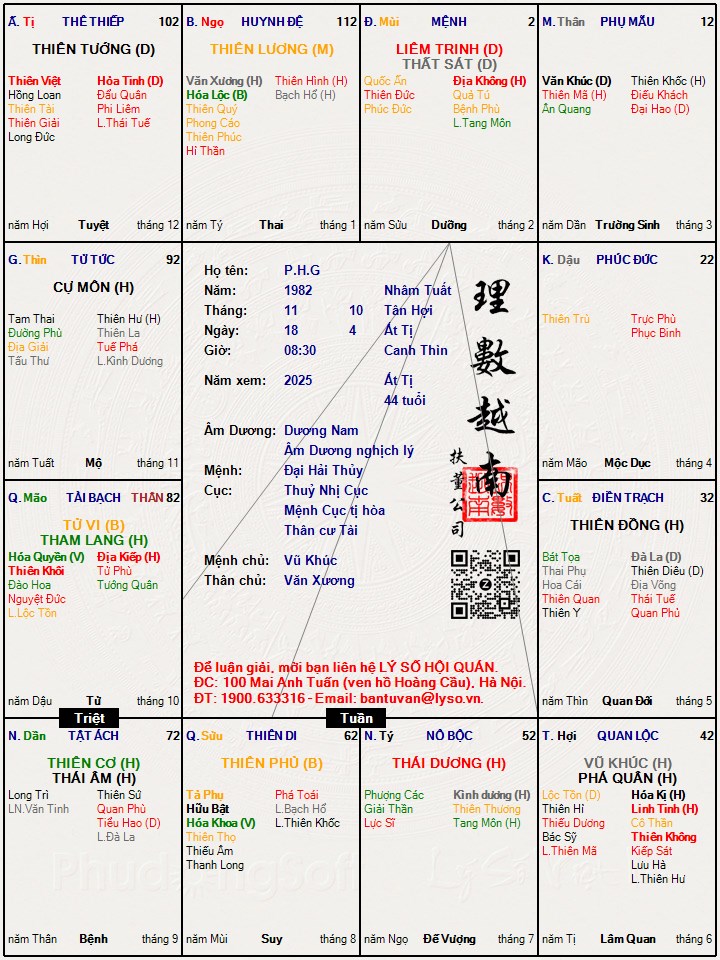 Ă. Tị THÊ THIẾP 102
THIÊN TƯỚNG (D)
Thiên Việt Hỏa Tinh (D)
Hồng Loan Đẩu Quân
Thiên Tài Phi Liêm
Thiên Giải L.Thái Tuế
Long Đức
năm Hợi Tuyệt tháng 12
B. Ngọ HUYNH ĐỆ 112
THIÊN LƯƠNG (M)
Văn Xương (H) Thiên Hình (H)
Hóa Lộc (B) Bạch Hổ (H)
Thiên Quý
Phong Cáo
Thiên Phúc
Hỉ Thần
năm Tý Thai tháng 1
Đ. Mùi MỆNH 2
LIÊM TRINH (D)
THẤT SÁT (D)
Quốc Ấn Địa Không (H)
Thiên Đức Quả Tú
Phúc Đức Bệnh Phù
L.Tang Môn
năm Sửu Dưỡng tháng 2
M. Thân PHỤ MẪU 12
Văn Khúc (D) Thiên Khốc (H)
Thiên Mã (H) Điếu Khách
Ân Quang Đại Hao (D)
năm Dần Trường Sinh tháng 3
G. Thìn TỬ TỨC 92
CỰ MÔN (H)
Tam Thai Thiên Hư (H)
Đường Phù Thiên La
Địa Giải Tuế Phá
Tấu Thư L.Kình Dương
năm Tuất Mộ tháng 11
Họ tên: P.H.G
Năm: 1982 Nhâm Tuất
Tháng: 11 10 Tân Hợi
Ngày: 18 4 Ất Tị
Giờ: 08:30 Canh Thìn
Năm xem: 2025 Ất Tị
44 tuổi
Âm Dương: Dương Nam
Âm Dương nghịch lý
Mệnh: Đại Hải Thủy
Cục: Thuỷ Nhị Cục
Mệnh Cục tị hòa
Thân cư Tài
Mệnh chủ: Vũ Khúc
Thân chủ: Văn Xương
理數越南
扶董公司
Z
Để luận giải, mời bạn liên hệ LÝ SỐ HỘI QUÁN.
ĐC: 100 Mai Anh Tuấn (ven hồ Hoàng Cầu), Hà Nội.
ĐT: 1900.633316 - Email: bantuvan@lyso.vn.
K. Dậu PHÚC ĐỨC 22
Thiên Trù Trực Phù
Phục Binh
năm Mão Mộc Dục tháng 4
Q. Mão TÀI BẠCH THÂN 82
TỬ VI (B)
THAM LANG (H)
Hóa Quyền (V) Địa Kiếp (H)
Thiên Khôi Tử Phù
Đào Hoa Tướng Quân
Nguyệt Đức
L.Lộc Tồn
năm Dậu Tử tháng 10
C. Tuất ĐIỀN TRẠCH 32
THIÊN ĐỒNG (H)
Bát Tọa Đà La (D)
Thai Phụ Thiên Diêu (D)
Hoa Cái Địa Võng
Thiên Quan Thái Tuế
Thiên Y Quan Phủ
năm Thìn Quan Đới tháng 5
Triệt
Tuần
N. Dần TẬT ÁCH 72
THIÊN CƠ (H)
THÁI ÂM (H)
Long Trì Thiên Sứ
LN.Văn Tinh Quan Phù
Tiểu Hao (D)
L.Đà La
năm Thân Bệnh tháng 9
Q. Sửu THIÊN DI 62
THIÊN PHỦ (B)
Tả Phụ Phá Toái
Hữu Bật L.Bạch Hổ
Hóa Khoa (V) L.Thiên Khốc
Thiên Thọ
Thiếu Âm
Thanh Long
năm Mùi Suy tháng 8
N. Tý NÔ BỘC 52
THÁI DƯƠNG (H)
Phượng Các Kình dương (H)
Giải Thần Thiên Thương
Lực Sĩ Tang Môn (H)
năm Ngọ Đế Vượng tháng 7
T. Hợi QUAN LỘC 42
VŨ KHÚC (H)
PHÁ QUÂN (H)
Lộc Tồn (D) Hóa Kị (H)
Thiên Hỉ Linh Tinh (H)
Thiếu Dương Cô Thần
Bác Sỹ Thiên Không
L.Thiên Mã Kiếp Sát
Lưu Hà
L.Thiên Hư
năm Tị Lâm Quan tháng 6